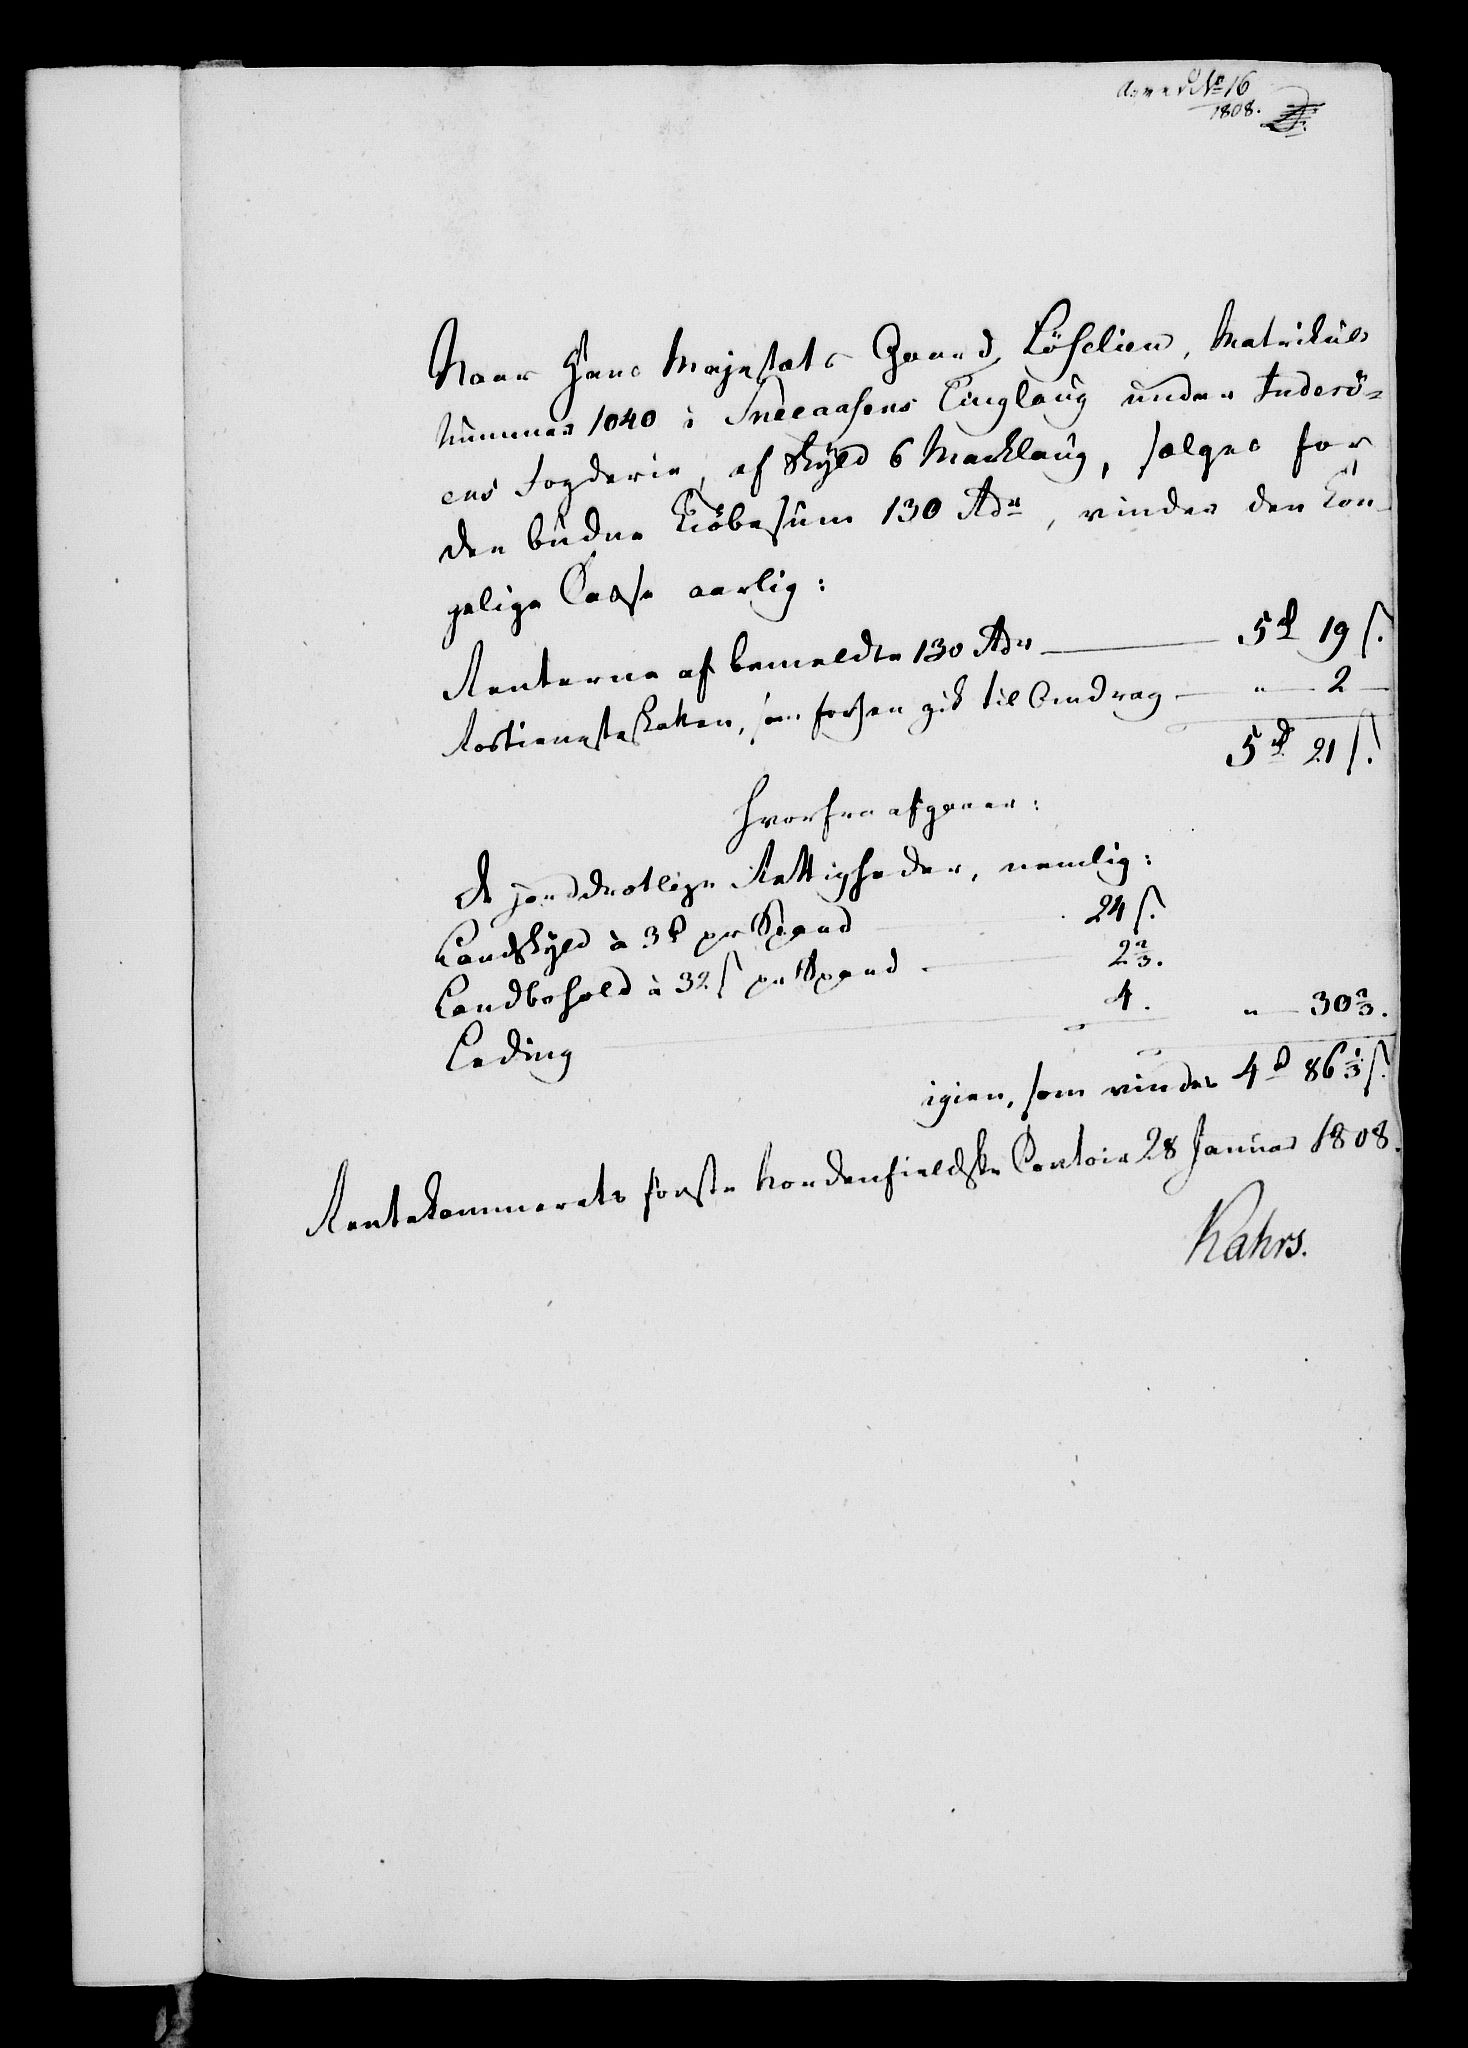 No 16
1808.
Naar Hans Majestæts Gaard Löfelien, Matrikuls
Nummer 1040 i Sneeaasens Tinglaug under Inderö-
ens Fogderie, af Skyld 6 Marklaug, sælges for
den budne Kiöbesum 130 Rdr, vinder den Kon-
gelige Casse aarlig:
Renterne af bemeldte 130 Rdr — 5 rd 19 s.
Rostieneste skatten, som forhen gik til Omdrag — " — 2 —
5 rd 21 s.
Hvorfra afgaaer:
de jorddrotlige Rettigheder, nemlig:
Landskyld à 3 rd pr Spand — 24 s.
Landbohold à 32 s pr Spand — 2 2/3.
Leding — 4. " — 30 2/3.
igien, som vindes 4 rd 86 1/3 s.
Rentekammerets förste Nordenfieldske Contoir 28 Januar 1808.
Kahrs.